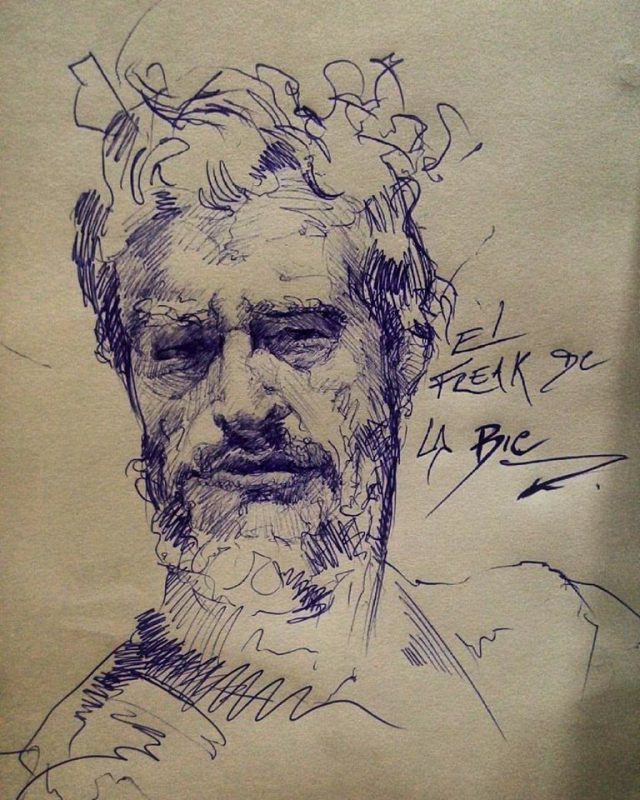 El
FREAK DE
LA BIC